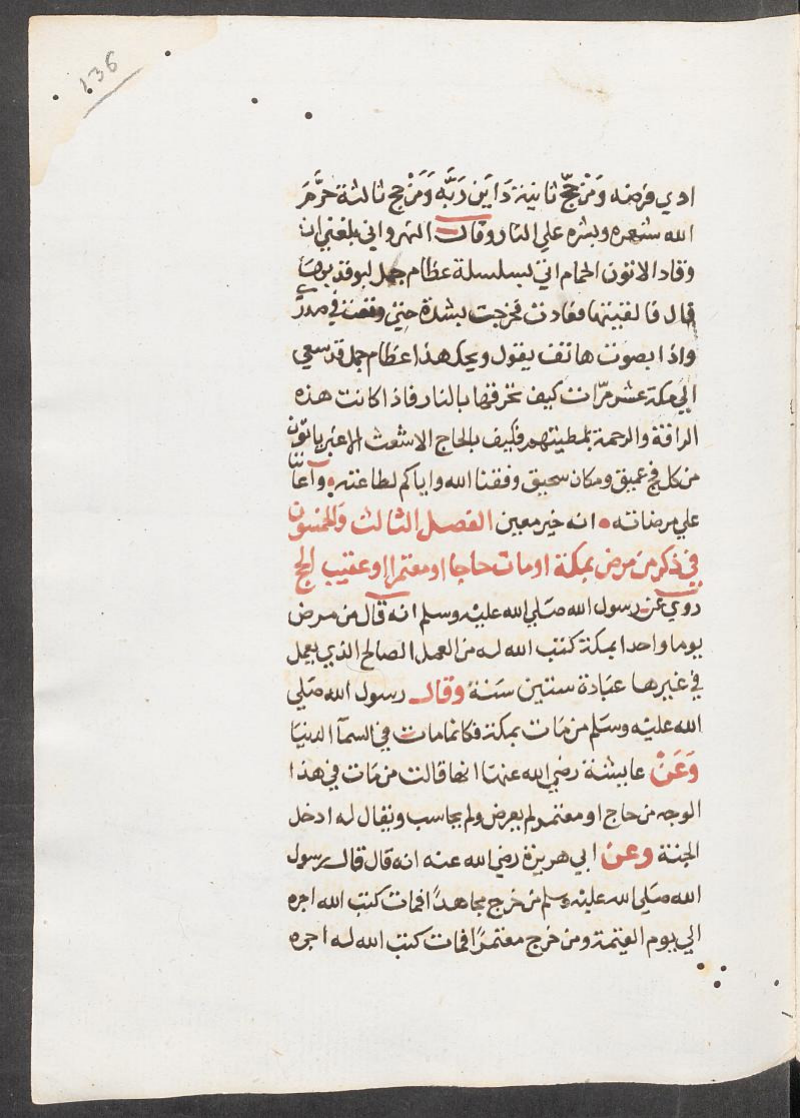 136
ادي فرضه وَمَنْ حجّ ثانية دَايَن رَبَّه وَمَنْ حج ثالثة حرَّمَ
الله شعره وبشره علي النار وقال النهرواني بلغني ان
وقاد الاتون الحمام اتي بسلسلة عظام جمل ليوقد بها
قال فالقيتها فعادت فخرجت بشدة حتي وقعت في صدري
واذا بصوت هاتف يقول ويحك هذا عظام جمل قد سعي
الي مكة عشر مرّات كيف تحرقها بالنار فاذا كانت هذه
الرافة والرحمة بمطيتهم فكيف بالحاج الاشعث الاغبر ياتون
من كل فج عميق ومكان سحيق وفقنا الله واياكم لطاعته واعاننا
علي مرضاته انه خير معين الفصل الثالث والخمسون
في ذكر من مرض بمكة او مات حاجا او معتمرا او عقيب الحج
روي عن رسول الله صَلي الله عليه وسلم انه قال من مرض
يوما واحدا بمكة كتب الله له من العمل الصالح الذي يعمل
في غيرها عبَادة ستين سَنة وقال رسول الله صَلي
الله عليه وسَلم من مَات بمكة فكانمامات في السمآ الدنيَا
وَعَنْ عايشة رضي الله عنهَا انها قالت من مَات في هذا
الوجه من حاج او معتمر لم يعرض ولم يحاسب ويقال له ادخل
الجنة وعن ابي هريرة رضي الله عنه انه قال قال رسول
الله صَلي الله عليه وسلم من خرج مجاهدًا فمات كتب الله اجره
الي يوم القيمة ومن خرج معتمرًا فمات كتب الله له اجره